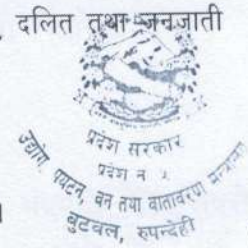 दलित तथा जनजाती
प्रदेश सरकार
प्रदेश नं ५
उद्योग, पर्यटन, वन तथा वातावरण मन्त्रालय
बुटवल, रुपन्देही